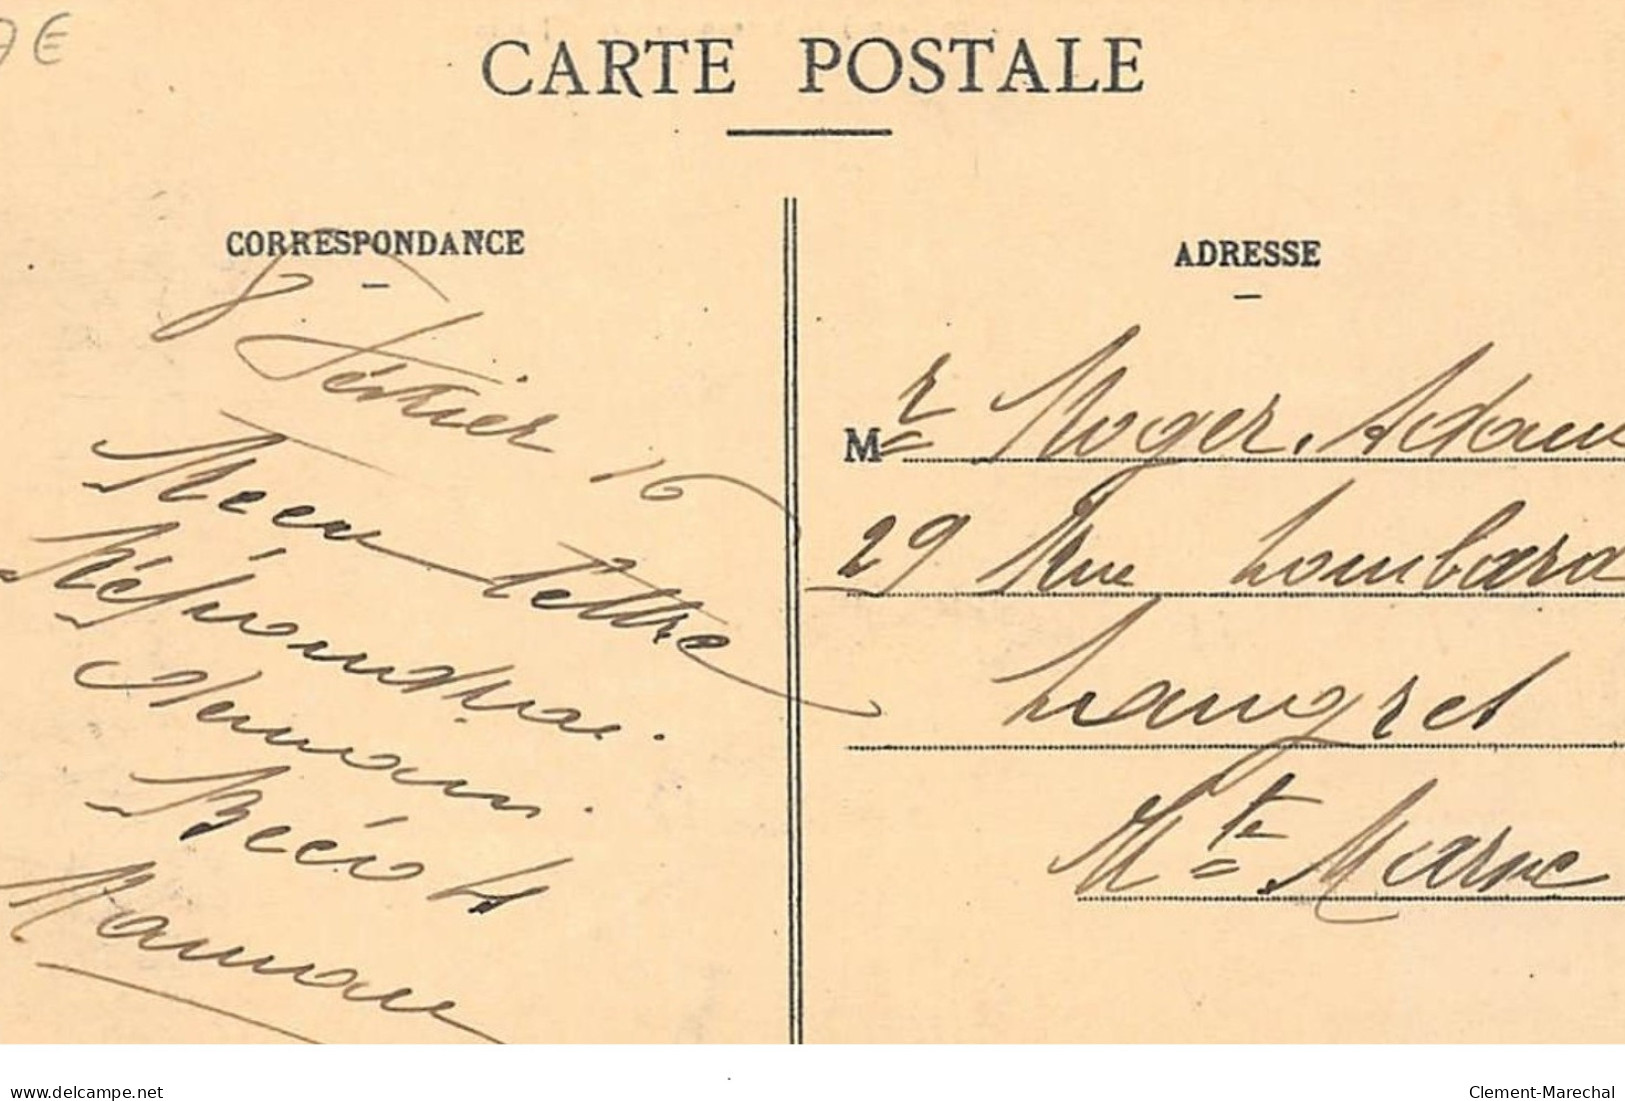 7€
CARTE POSTALE
CORRESPONDANCE
8 Février 16
Reçu lettre
Répondrai
demain.
Bécots
Maman
ADRESSE
Mr Roger Adam
29 Rue Lombard
Langres
Hte Marne
delcampe.net
Clement-Marechal